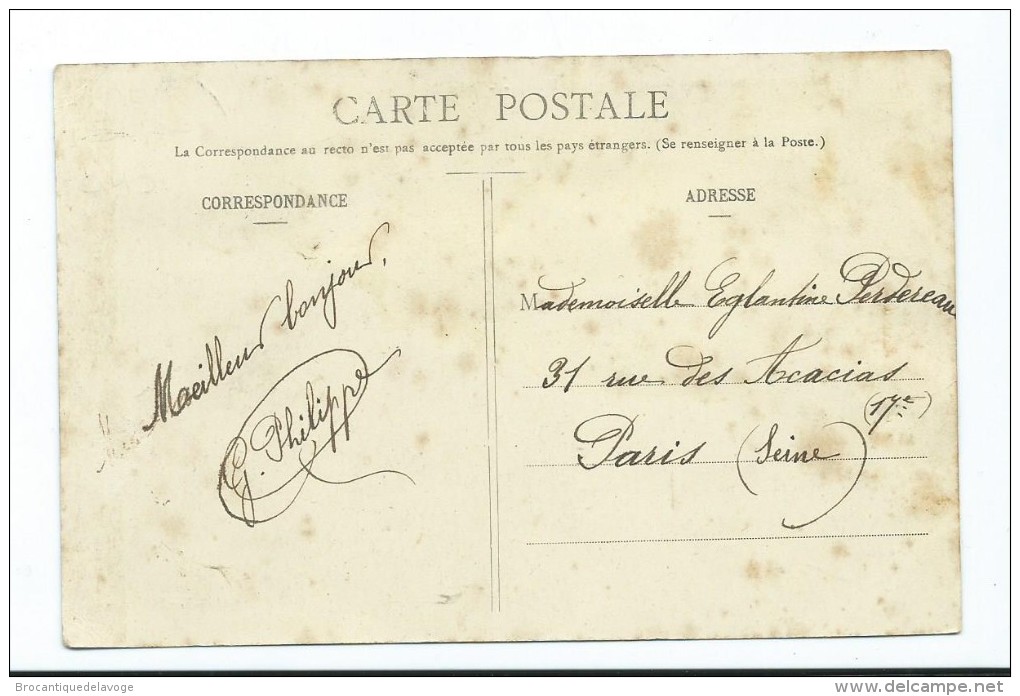 CARTE POSTALE
La Correspondance au recto n'est pas acceptée par tous les pays étrangers. (Se renseigner à la Poste.)
CORRESPONDANCE
Maeilleur bonjour,
G. Philippe
ADRESSE
Mademoiselle Eglantine Perdereau
31 rue des Acacias
(17e)
Paris (Seine)
Brocantiquedelavoge
www.delcampe.net